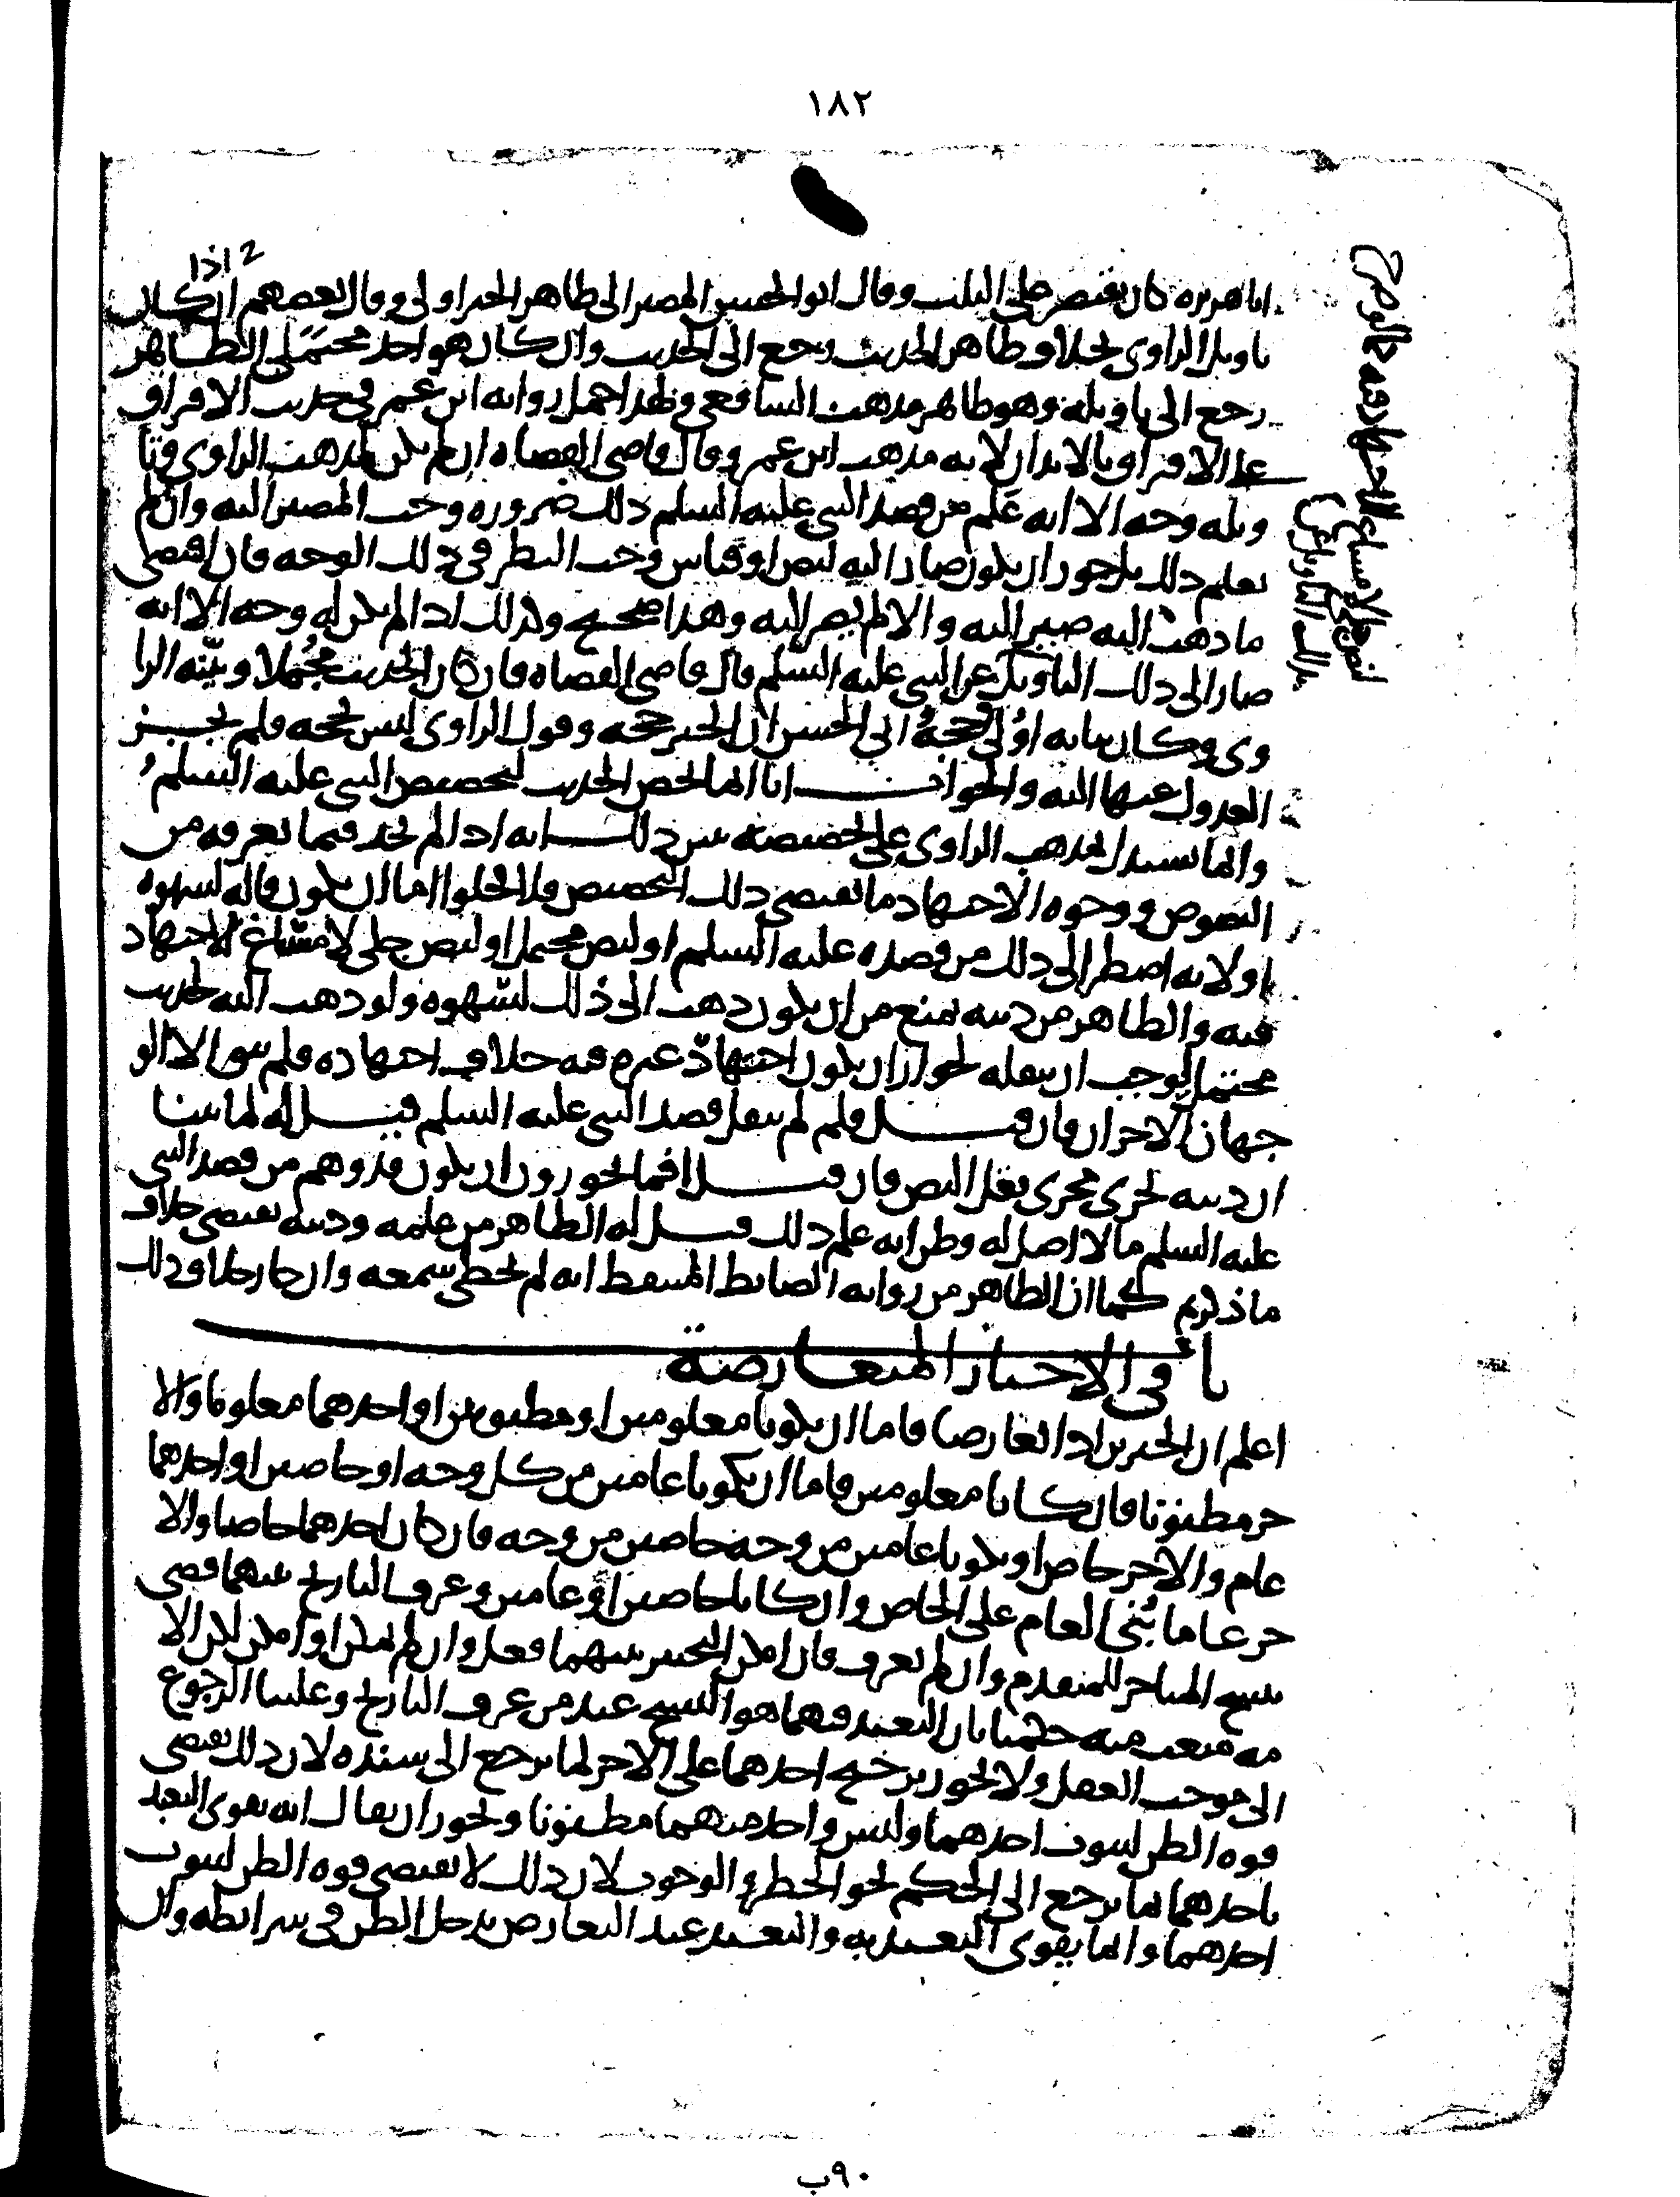 ١٨٢
اذا
ابا هريره كان يقتصر على الثلث وقال ابو الحسين المصير الى ظاهر الخبر اولى وقال بعضهم ان كان
تاويل الراوى بخلاف ظاهر الحديث رجع الى الحديث وان كان هو احد محتملى الظاهر
رجع الى تاويله وهو ظاهر مذهب الشافعى ولهذا حمل روايه ابن عمر فى حديث الافتراق
على الافتراق بالابدان لانه مذهب ابن عمر وقال قاضى القضاه ان لم يكن لمذهب الراوى وتا
ويله وجه الا انه عَلِم من قصد النبى عليه السلم ذلك ضروره وجب المصير اليه وان لم
نعلم ذلك بل جوز ان يكون صار اليه لنص او قياس وجب النظر فى ذلك الوجه فان اقتضى
ما ذهب اليه صير اليه والا لم يصر اليه وهذا صحيح وكذلك اذا لم يكن له وجه الا انه
صار الى ذلك التاويل عن النبى عليه السَّلم قال قاضى القضاه فان كان الحديث مُجملا وبيّنه الرا
وى وكان بيانه اوْلى حجةُ ابى الحسن ان الخبر حجه وقول الراوى ليس بحجه فلم يجــز
العدول عنها اليه والجواب انا انما نخص الحديث لتخصيص النبى عليه السلم
وانما نستدل بمذهب الراوى على تخصيصه يبين ذلك انه اذا لم نجد فيما نعرفه من
النصوص ووجوه الاجتهاد ما يقتضى ذلك التخصيص فلا يخلوا اما ان يكون قاله لشهوه
او لانه اضطر الى ذلك من قصده عليه السلم او لنص محتمل او لنص جلى لا مساغ للاجتهاد
فيه والظاهر من دينه يمنع من ان يكون ذهب الى ذلك لشهوه ولو ذهب اليه لحديث
محتمل لوجب ان ينقله لجواز ان يكون اجتهادُ غيره فيه خلاف اجتهاده فلم يبق الا الو
جهان الاخران فان قيــل فلم لم ينقل قصد النبى عليه السلم قيــل له لما بينا
ان دينه يجرى مجرى نقل النص فان قيــل افما تجوزون ان يكون قد وهم من قصد النبى
عليه السلم ما لا اصل له وظن انه علم ذلك قيــل له الظاهر من علمه ودينه يقتضى خلاف
ما ذكرتم كما ان الظاهر من روايه الضابط المتيقظ انه لم يخط سمعه وان جاز خلاف ذلك
باب فى الاخبار المتعارضة
اعلم ان الخبرين اذا تعارضا فاما ان يكونا معلومين او مظنونين او احدهما معلوما والا
خر مظنونا فان كانا معلومين فاما ان يكونا عامين من كل وجه او خاصين او احدهما
عام والاخر خاص او يكونا عامين من وجه خاصين من وجه فان كان احدهما خاصا والا
خر عاما بُنىَ العام على الخاص وان كانا خاصين او عامين وعرف التاريخ بينهما قضى
بنسخ المتاخر للمتقدم وان لم يعرف فان امكن التخيير بينهما فعل وان لم يمكن او امكن لكن الا
مه منعت منه حكمنا بان التعبد فيهما هو النسخ عند من عرف التاريخ وعلينا الرجوع
الى موجب العقل ولا يجوز ترجيح احدهما على الاخر لما يرجع الى سنده لان ذلك يقتضى
قوه الظن لثبوت احدهما وليس واحد منهما مظنونا ويجوز ان يقال انه يقوى التعبد
باحدهما لما يرجع الى الحكم نحو الحظر والوجوب لان ذلك لا يقتضى قوه الظن لثبوت
احدهما وانما يقوى التعبد به والتعبد عند التعارض يدخل الظن فى شرائطه وان
٩٠ب